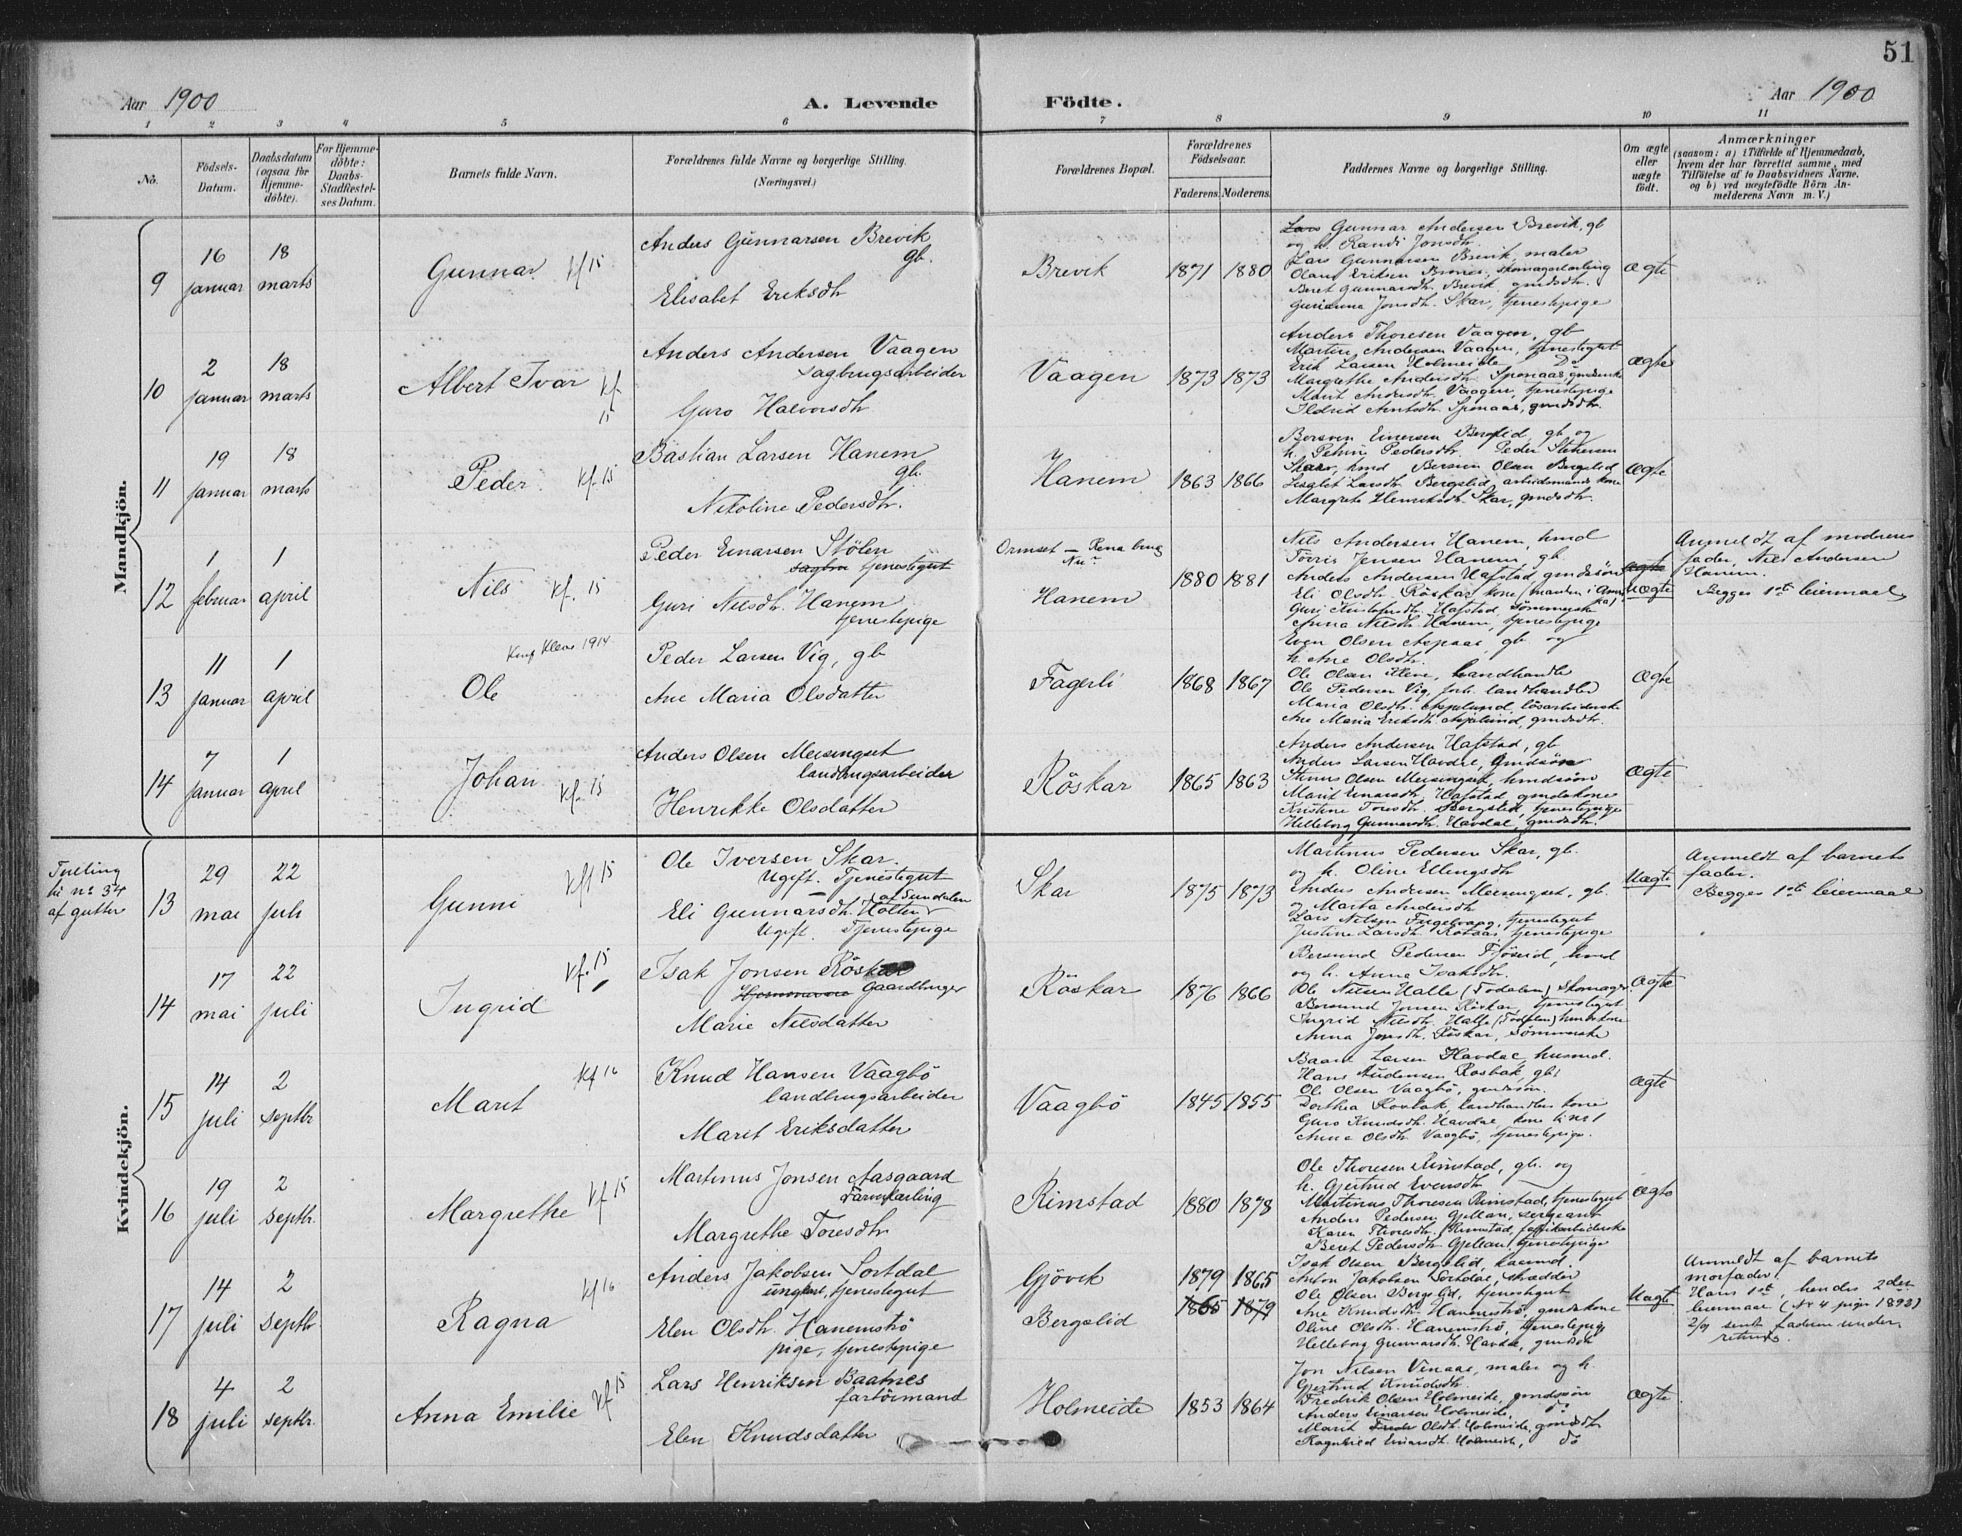 51
Aar 1900
A. Levende Födte.
Aar 1900
1 2 3 4 5 6 7 8 9 10 11
No.
Födsels-Datum.
Daabsdatum (ogsaa for Hjemme-döbte).
For Hjemme-döbte: Daabs-Stadfæstel-ses Datum.
Barnets fulde Navn.
Forældrenes fulde Navne og borgerlige Stilling.
(Næringsvei.)
Forældrenes Bopæl.
Forældrenes Födselsaar.
Faderens. Moderens.
Faddernes Navne og borgerlige Stilling.
Om ægte eller uægte födt.
Anmærkninger
(saasom: a) i Tilfælde af Hjemmedaab,
hvem der har forrettet samme, med
Tilföielse af to Daabsvidners Navne,
og b) ved uægtefödte Börn An-
melderens Navn m. V.)
Mandkjön.
9
16 januar
18 marts
Gunnar kf 15
Anders Gunnarsen Brevik
gb.
Elisabet Eriksdtr
Brevik
1871 1880
Lars Gunnar Andersen Brevik, gb
og h. Randi Jonsdtr.
Lars Gunnarsen Brevik, maler
Beret Gunnarsdtr. Brevik, gmdsdtr.
Gurianna Jonsdtr. Skar, tjenestepige
ægte
10
2 januar
18 marts
Albert Ivar kf. 15
Anders Andersen Vaagen
sagbrugsarbeider
Guro Halvorsdtr
Vaagen
1873 1873
Anders Thoresen Vaagen, gb
Martin Andersen Vaagen, tjenestegut
Erik Larsen Holmeide Do
Margrethe Andersdtr. Sponaas, gmdsenke
Marit Andersdtr. Vaagen, tjenestepige
Ildrid Arntsdtr. Sponaas, gmdsdtr.
ægte
11
19 januar
18 marts
Peder. kf. 15
Bastian Larsen Hanem
gb.
Nikoline Pedersdtr.
Hanem
1863 1866
Bersven Einersen Bergslid, gb og
h. Petrine Pedersdtr. Peder Stehensen
Skaar, hmd Bersven Olsen Bergslid
Lisabet Larsdtr Bergslid, arbeidsmands kone
Margrete Henriksdtr. Skar, gmdsdtr.
ægte
12
1 februar
1 april
Nils kf. 15
Peder Einarsen Stölen
sagbr tjenestegut
Guri Nilsdtr. Hanem
tjenestepige
Ormset — Rena brug
Nu
Hanem
1880 1881
Nils Andersen Hanem, hmd
Torris Jensen Hanem, gb
Anders Andersen Hafstad, gmdssön
Eli Olsdtr. Röskar, kone (manden i Amerika)
Guri Kristofersdtr. Hafstad sömmerske
Anna Nilsdtr. Hanem, tjenestepige
ægte
uægte
Anmeldt af moderens
fader, Nils Andersen
Hanem.
Begges 1ste leiermaal
13
11 januar
1 april
Ole
Peder Larsen Vig, gb
Ane Maria Olsdatter
Fagerli
1868 1867
Even Olsen Aspaas, gb. og
h. Ane Olsdtr.
Ole Olsen Kleve, handhandler
Ole Pedersen Vig, forh. landhandler
Maria Olsdtr. Aspelund, lösarbeiderske
Ane Maria Eriksdtr. Aspelund, gmdsdtr.
ægte
14
7 januar
1 april
Johan kf. 15
Anders Olsen Meisingset
landbrugsarbeider
Henrikke Olsdatter
Röskar
1865 1863
Anders Andersen Hafstad, gb
Anders Larsen Havdal, Gmdssön
Stinus Olsen Meisingset, hmdssön
Marit Einarsdtr. Hafstad, gmdskone
Kristine Toresdtr. Bergslid, tjenestepige
Helleborg Gunnarsdtr. Havdal, gmdsdtr.
ægte
Kvindekjön.
Tvilling
til nr 34
af gutter
13
29 mai
22 juli
Gunni kf 15
Ole Iversen Skar.
Ugift. Tjenestegut
Eli Gunnarsdtr. Holten af Sundalen
Ugift. Tjenestepige
Skar
1875 1873
Martinus Pedersen Skar, gb.
og h. Oline Ellingsdtr
Anders Andersen Meisingset, gb.
og Marta Andersdtr
Lars Nilsen Fugelvaag, tjenestegut
Justine Larsdtr. Rotaas, tjenestepige
Uægte
Anmeldt af barnets
fader.
Begges 1ste leiermaal
14
17 mai
22 juli
Ingrid kf. 15
Isak Jonsen Röskar
Gaardbruger
Marie Nilsdatter
Röskar
1876 1866
Bersvend Pedersen Fjöseid, hmd
og h. Anna Isaksdtr.
Ole Nilsen Halle (Todalen) skomager
Bersvend Jonsen Röskar, tjenestegut
Ingrid Nilsdtr. Halle (Todalen) hmdskone
Anna Jonsdtr. Röskar, sömmerske
ægte
15
14 juli
2 septbr
Marit kf 16
Knud Hansen Vaagbö
landbrugsarbeider
Marit Eriksdatter
Vaagbö
1845 1855
Baard Larsen Havdal, husmd.
Hans Audensen Rosbak, gb.
Ole Olsen Vaagbö, gmdssön.
Dorthea Rosbak, landhandlers kone
Guro Knudsdtr. Havdal, kone til no 1
Anne Olsdtr. Vaagbö, tjenestepige.
ægte
16
19 juli
2 septbr.
Margrethe kf 15
Martinus Jonsen Aasgaard
Farverlærling
Margrethe Toresdtr
Rimstad
1880 1878
Ole Thoresen Rimstad, gb. og
h. Gjertrud Evensdtr
Martinus Thoresen Rimstad, tjenestegut
Anders Pedersen Gjellan, sergeant
Karen Thoresdtr. Rimstad, fabrikarbeiderske
Beret Pedersdtr. Gjellan, tjenestepige
ægte
17
14 juli
2 septbr
Ragna kf 16
Anders Jakobsen Sortdal
ungkarl, tjenestegut
Elen Olsdtr. Hanemströ
pige, tjenestepige
Gjövik
Bergslid
1879 1865
1865 1879
Isak Olsen Bergslid, kaarmd.
Anton Jakobsen Sortdal, skrædder
Ole Olsen Bergslid, tjenestegut
Ane Knudsdtr. Hanemströ, gmdskone
Oline Olsdtr. Hanemströ, tjenestepige
Helleborg Gunnarsdtr. Havdal, gmdsdtr
Uægte
Anmeldt af barnets
morfader.
Hans 1ste, hendes 2den
leiermaal (Nr 4 piger 1893)
18
4 juli
2 septbr.
Anna Emilie kf 15
Lars Henriksen Baatnes
fartöimand
Elen Knudsdatter
Holmeide
1853 1864
Jon Nilsen Vinaas, maler og h.
Gjertrud Knudsdtr.
Fredrik Olsen Holmeide, gmdssön
Anders Einarsen Holmeide, do
Marit Olsdtr Holmeide, gmdsdtr
Ragnhild Einarsdtr. Holmeide, do
ægte